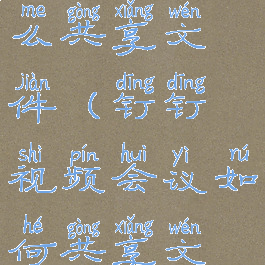 me gòng xiǎng wén
么共享文
jiàn dīng dīng
件(钉钉
shì pín huì yì rú
视频会议如
hé gòng xiǎng wén
何共享文